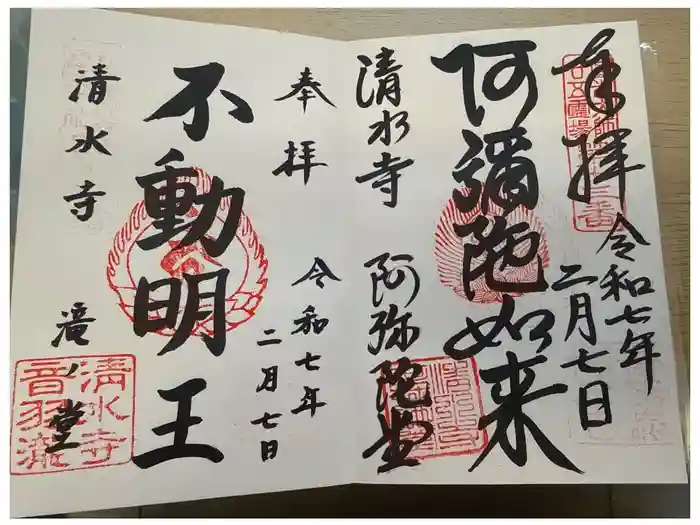 奉拝
令和七年
二月七日
阿彌陀如来
清水寺
阿弥陀堂
奉拝
令和七年
二月七日
不動明王
清水寺
滝ノ堂
清水寺
音羽瀧